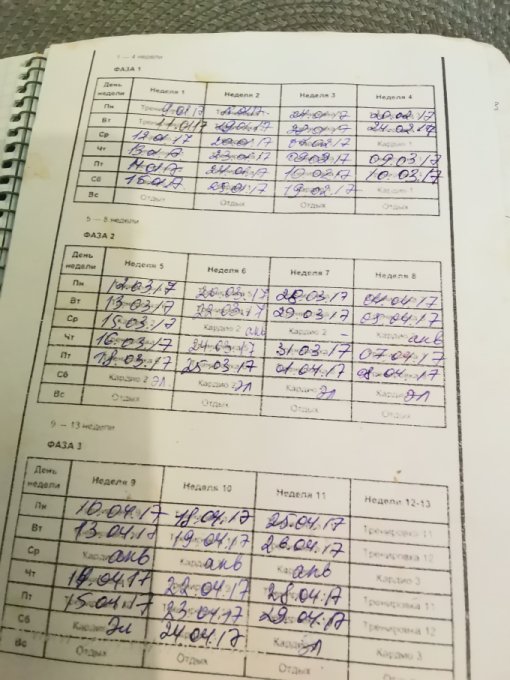 1 — 4 недели
ФАЗА 1
День недели Неделя 1 Неделя 2 Неделя 3 Неделя 4
Пн 9.01.17 20.02.17
Вт 11.01.17 24.02.17
Ср 12.01.17 20.01.17 Кардио 1
Чт 13.01.17 23.01.17 09.02.17 09.03.17
Пт 14.01.17 24.01.17 10.02.17 10.03.17
Сб 16.01.17 25.01.17 19.02.17 Кардио 1
Вс Отдых Отдых Отдых Отдых
3
5 — 8 недели
ФАЗА 2
День недели Неделя 5 Неделя 6 Неделя 7 Неделя 8
Пн 12.03.17 20.03.17 28.03.17 04.04.17
Вт 13.03.17 22.03.17 29.03.17 05.04.17
Ср 15.03.17 Кардио 2 акв Кардио 2 – акв
Чт 16.03.17 24.03.17 31.03.17 07.04.17
Пт 18.03.17 25.03.17 01.04.17 08.04.17
Сб Кардио 2 Эл Кардио 2 Эл Кардио Эл Кардио Эл
Вс Отдых Отдых Отдых Отдых
9 — 13 недели
ФАЗА 3
День недели Неделя 9 Неделя 10 Неделя 11 Неделя 12-13
Пн 10.04.17 18.04.17 25.04.17 Тренировка 11
Вт 13.04.17 19.04.17 26.04.17 Тренировка 12
Ср Кардио акв Кардио акв Кардио акв Кардио 3
Чт 14.04.17 22.04.17 28.04.17 Тренировка 11
Пт 15.04.17 23.04.17 29.04.17 Тренировка 12
Сб Кардио Эл 24.04.17 Кардио Эл Кардио 3
Вс Отдых Отдых Отдых Отдых